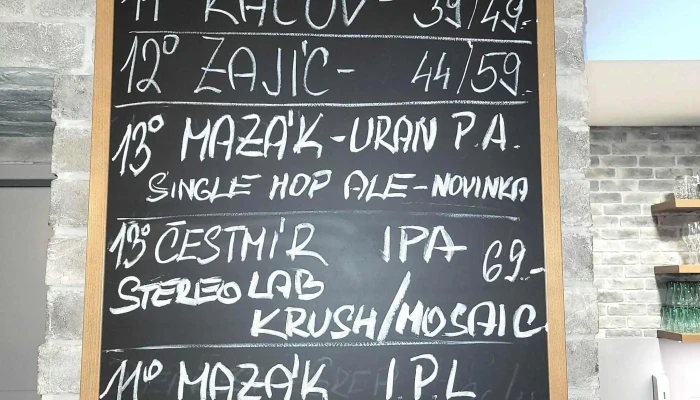 11° KÁCOV - 39/49.-
12° ZAJÍC - 44/59.-
13° MAZÁK - URAN P.A.
SINGLE HOP ALE - NOVINKA
13° ČESTMÍR IPA 69.-
STEREO LAB
KRUSH/MOSAIC
11° MAZÁK I.P.L